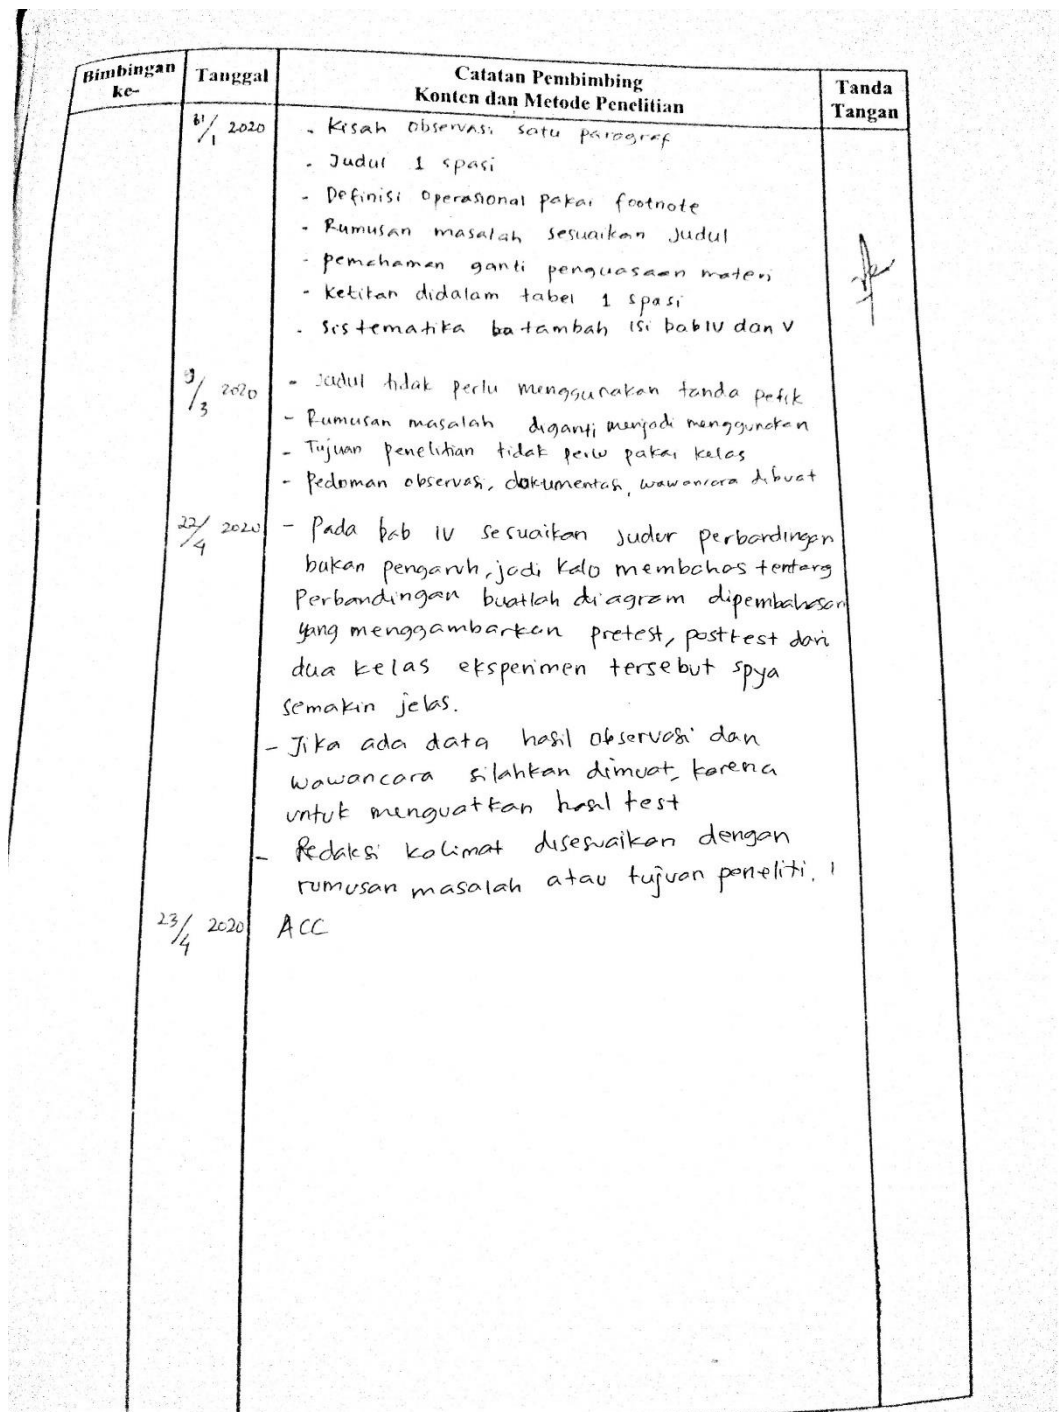 Bimbingan ke-
Tanggal
Catatan Pembimbing
Konten dan Metode Penelitian
Tanda Tangan
31/1 2020
- Kisah observasi satu paragraf
- Judul 1 spasi
- Definisi operasional pakai footnote
- Rumusan masalah sesuaikan judul
- pemahaman ganti penguasaan materi
- Ketikan didalam tabel 1 spasi
- Sistematika batambah isi bab IV dan V
9/3 2020
- Judul tidak perlu menggunakan tanda petik
- Rumusan masalah diganti menjadi menggunakan
- Tujuan penelitian tidak perlu pakai kelas
- Pedoman observasi, dokumentasi, wawancara dibuat
22/4 2020
- Pada bab IV sesuaikan Judul perbandingan
bukan pengaruh, jadi kalo membahas tentang
Perbandingan buatlah diagram dipembahasan
yang menggambarkan pretest, posttest dari
dua kelas eksperimen tersebut spya
semakin jelas.
- Jika ada data hasil observasi dan
wawancara silahkan dimuat, karena
untuk menguatkan hasil test
- Redaksi kalimat disesuaikan dengan
rumusan masalah atau tujuan peneliti.
23/4 2020
ACC